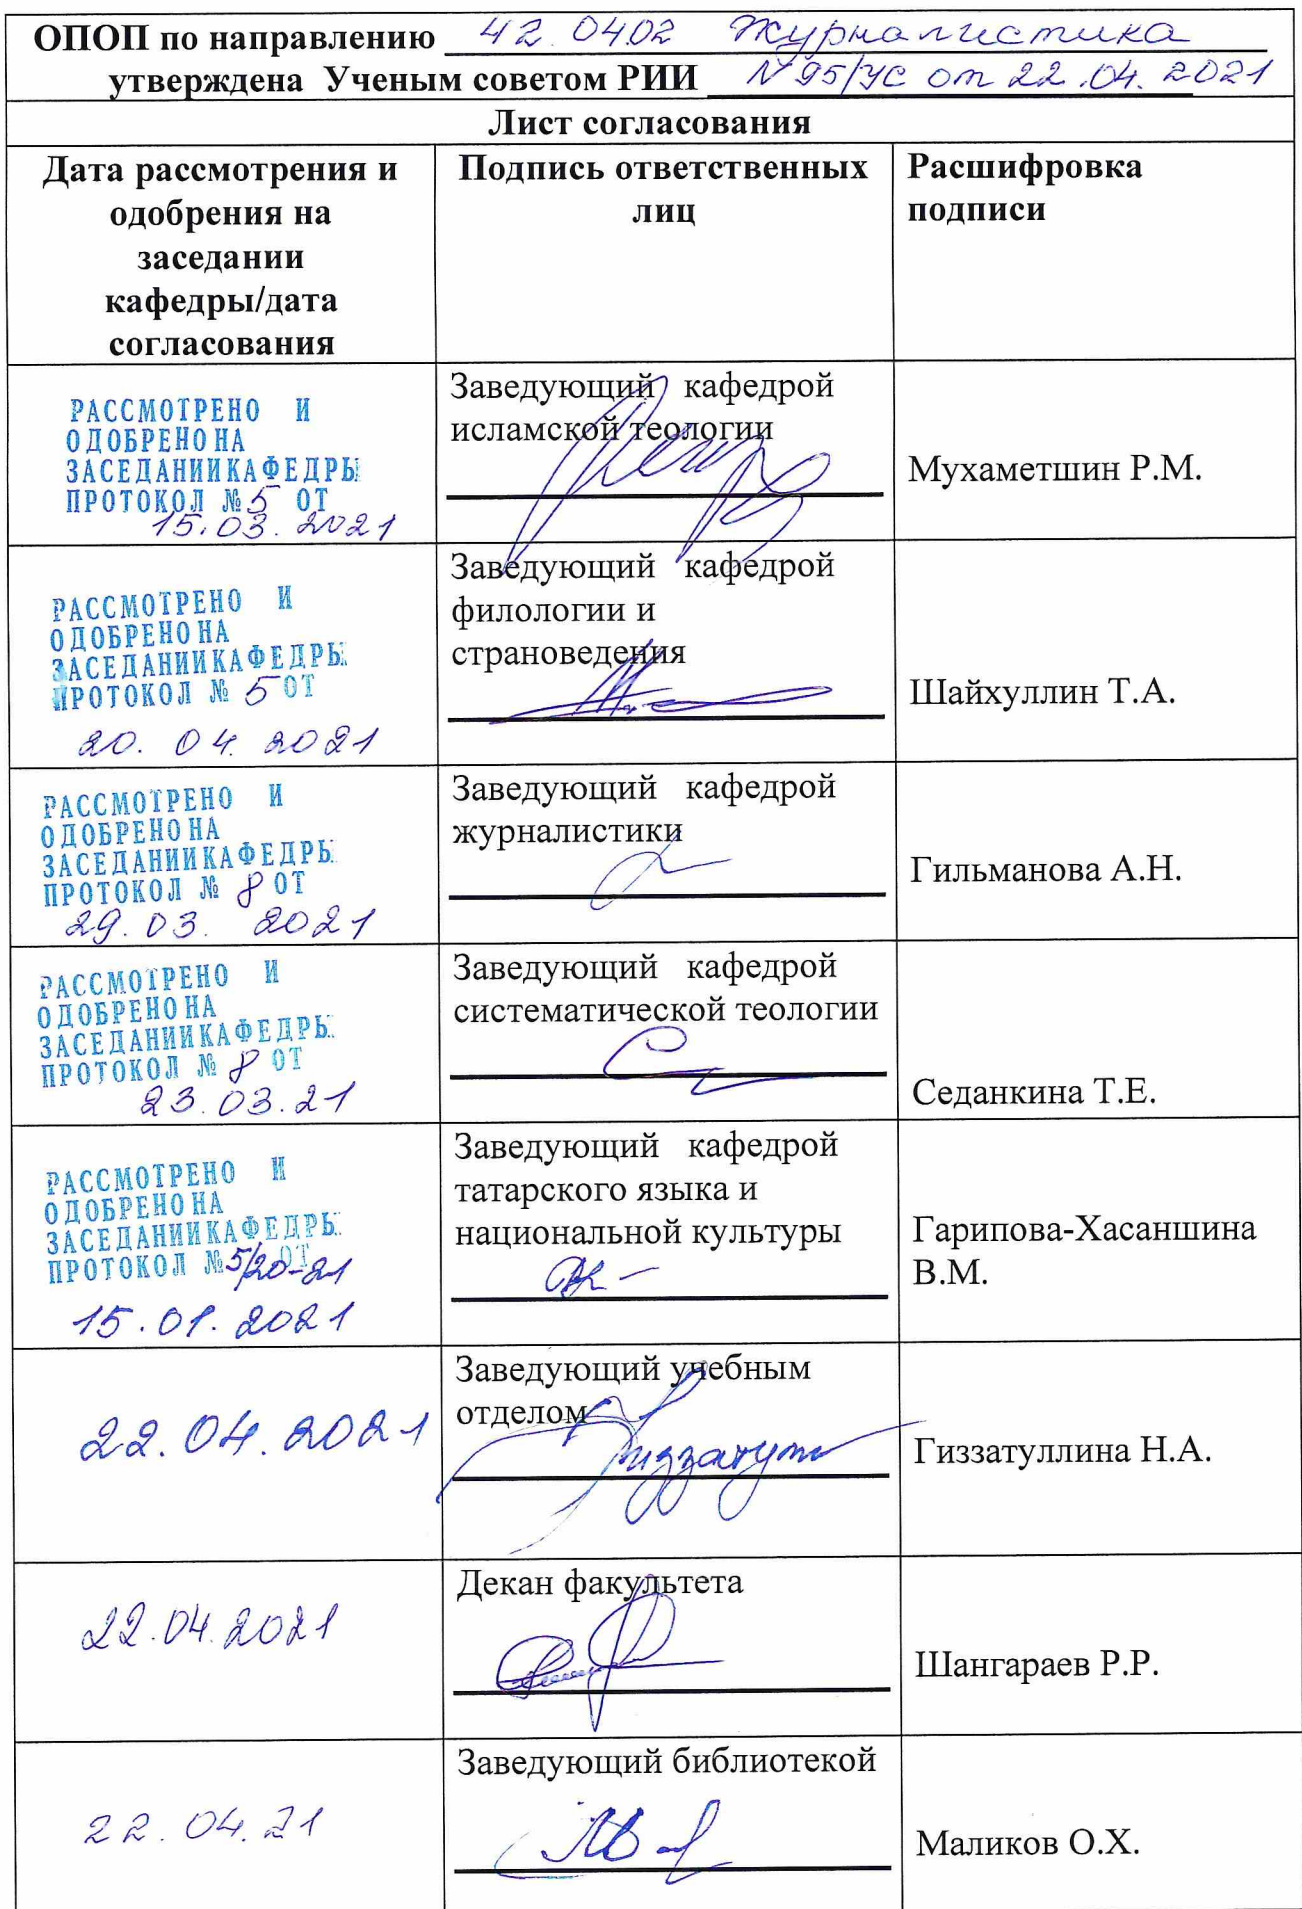 ОПОП по направлению 42 0402 Журналистика
утверждена Ученым советом РИИ №95/УС от 22.04.2021
Лист согласования
Дата рассмотрения и
одобрения на
заседании
кафедры/дата
согласования
Подпись ответственных
лиц
Расшифровка
подписи
РАССМОТРЕНО И
ОДОБРЕНО НА
ЗАСЕДАНИИ КАФЕДРЫ
ПРОТОКОЛ № 5 ОТ
15.03.2021
Заведующий кафедрой
исламской теологии
Мухаметшин Р.М.
РАССМОТРЕНО И
ОДОБРЕНО НА
ЗАСЕДАНИИ КАФЕДРЫ
ПРОТОКОЛ № 5 ОТ
20.04.2021
Заведующий кафедрой
филологии и
страноведения
Шайхуллин Т.А.
РАССМОТРЕНО И
ОДОБРЕНО НА
ЗАСЕДАНИИ КАФЕДРЫ
ПРОТОКОЛ № 8 ОТ
29.03.2021
Заведующий кафедрой
журналистики
Гильманова А.Н.
РАССМОТРЕНО И
ОДОБРЕНО НА
ЗАСЕДАНИИ КАФЕДРЫ
ПРОТОКОЛ № 8 ОТ
23.03.21
Заведующий кафедрой
систематической теологии
Седанкина Т.Е.
РАССМОТРЕНО И
ОДОБРЕНО НА
ЗАСЕДАНИИ КАФЕДРЫ
ПРОТОКОЛ № 5/20-21 ОТ
15.01.2021
Заведующий кафедрой
татарского языка и
национальной культуры
Гарипова-Хасаншина
В.М.
22.04.2021
Заведующий учебным
отделом
Гиззатуллина Н.А.
22.04.2021
Декан факультета
Шангараев Р.Р.
22.04.21
Заведующий библиотекой
Маликов О.Х.